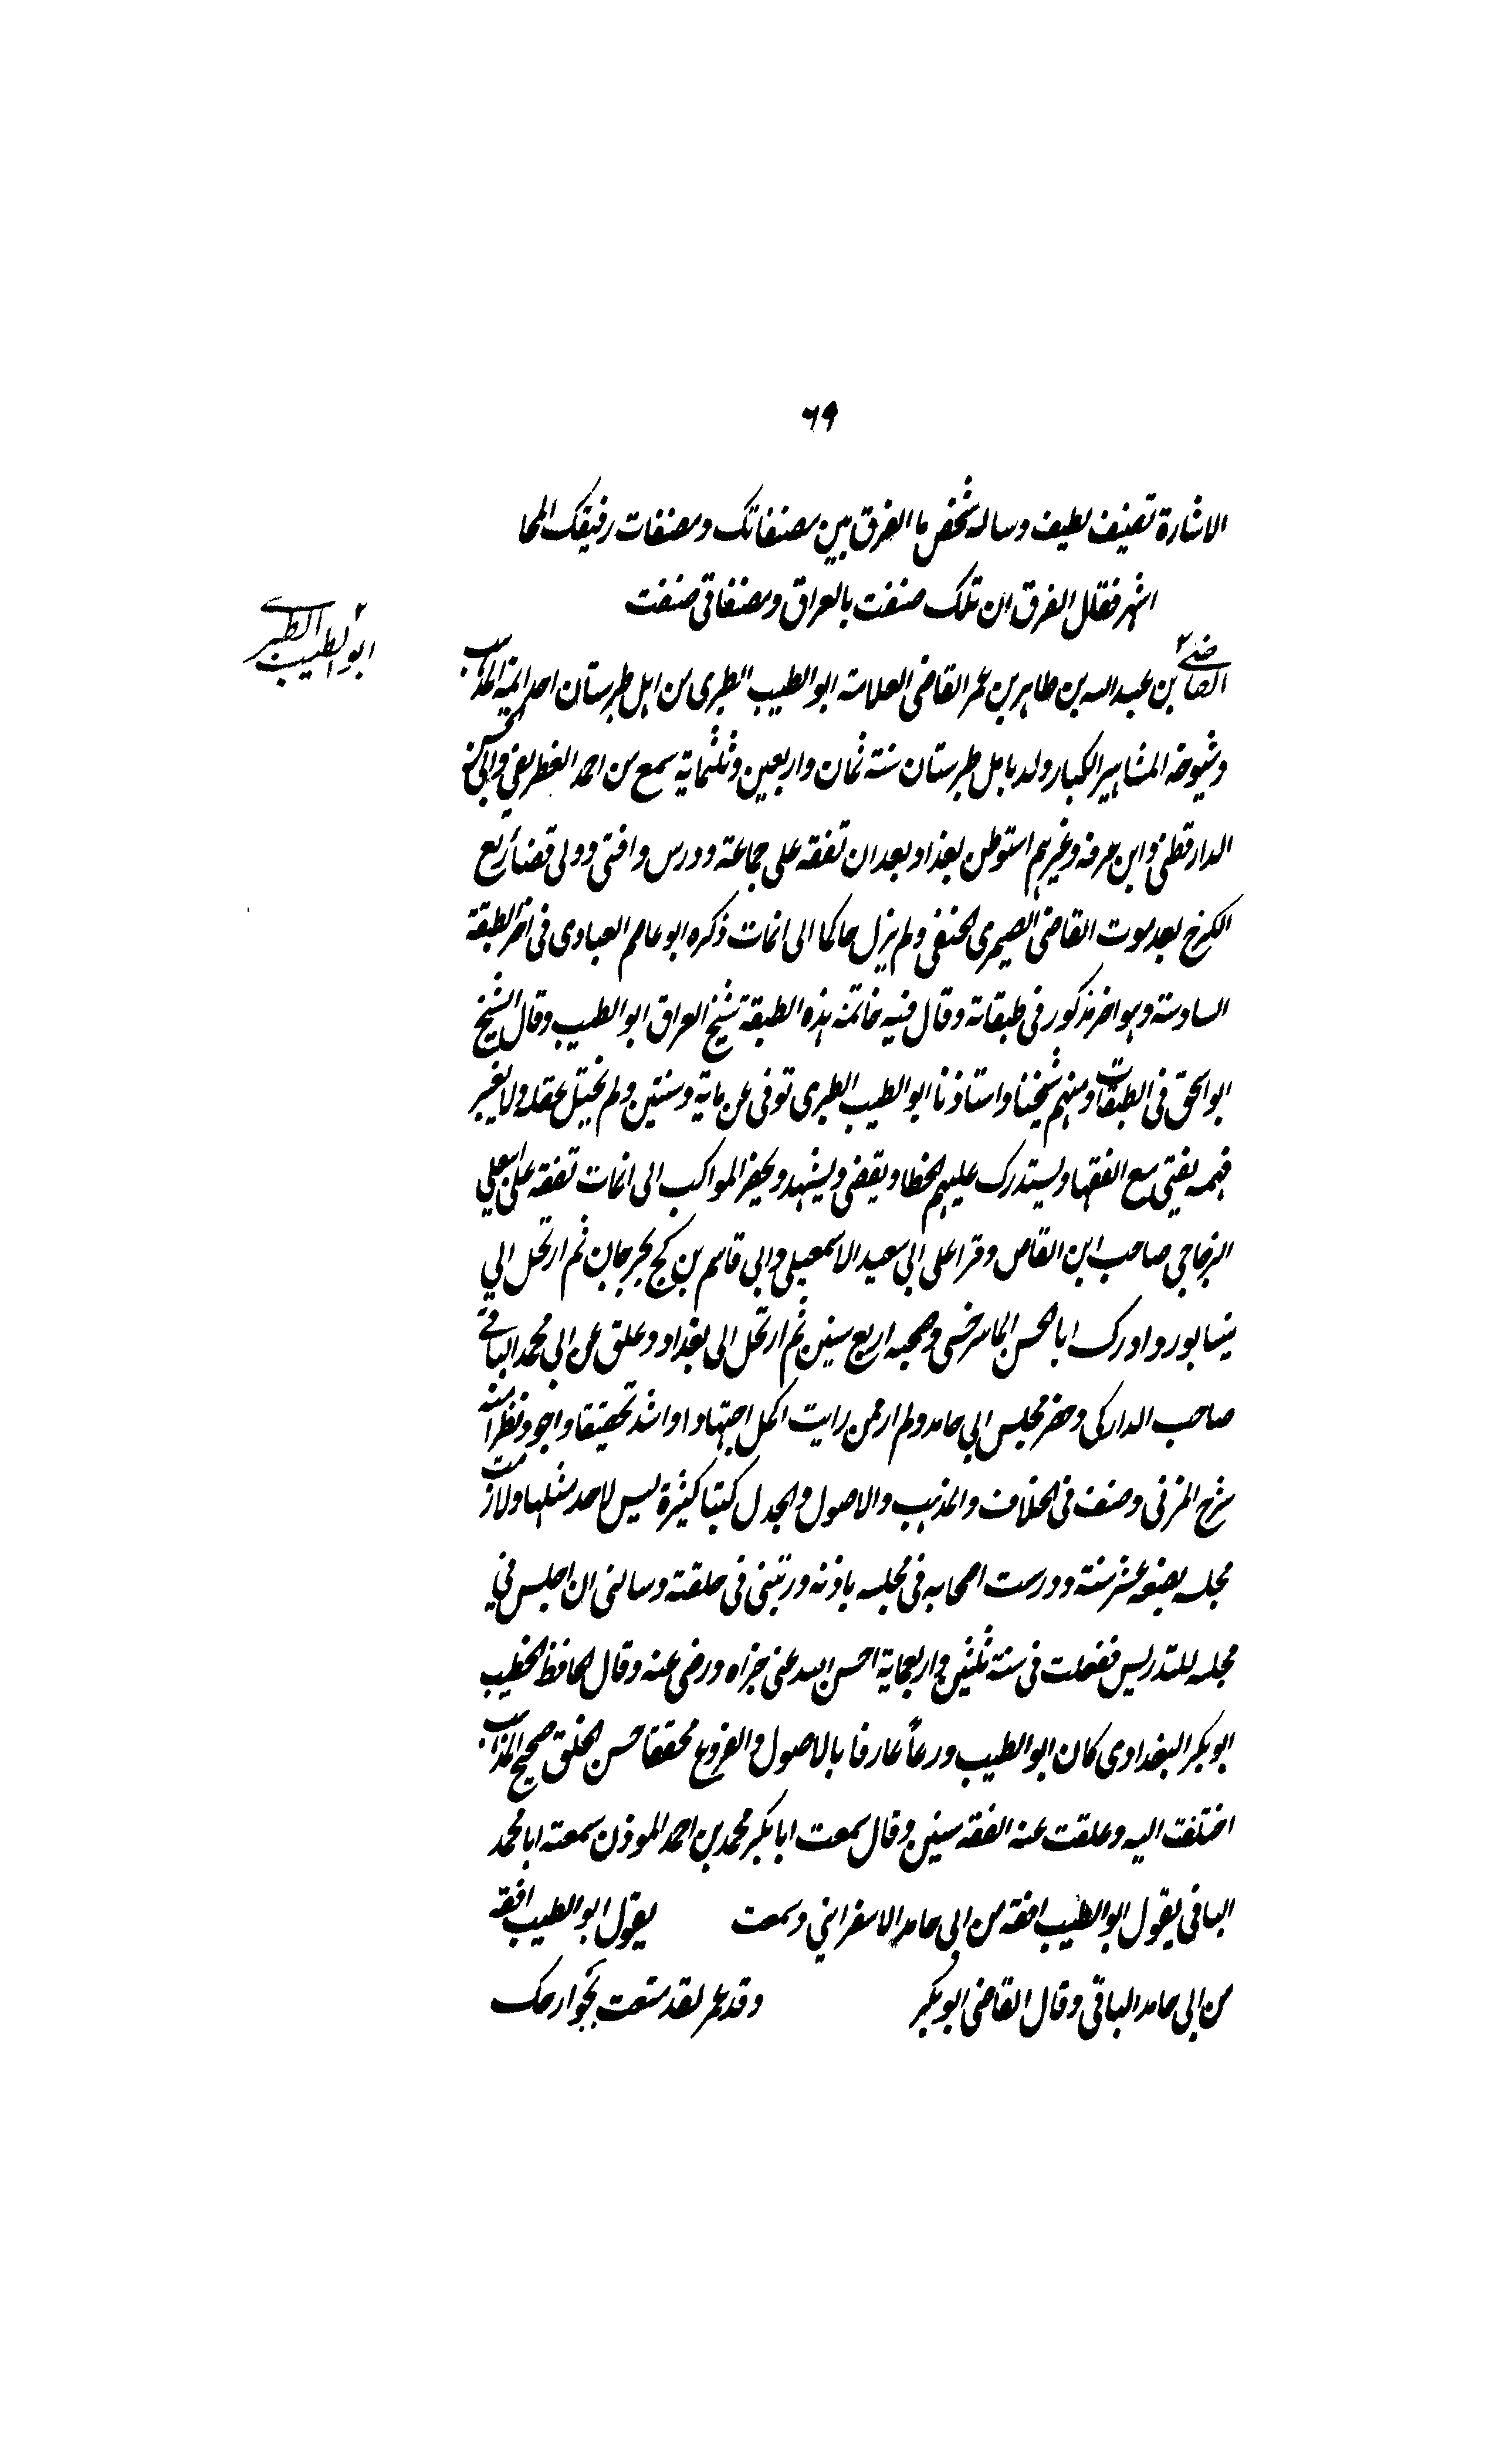 ٦٩
الاشارة تصنيف لطيف وساله شخص ما الفرق بين مصنفاتك ومصنفات رفيقك المحا
اشهر فقلل الفرق ان تلك صنفت بالعراق ومصنفاتي صنفت
ابو الطيب الطبرى
بن عبد الله بن طاهر بن عمر القاضى العلامة ابو الطيب الطبرى من اهل طبرستان احد ايمة المذاهب
وشيوخه المشاهير الكبار ولد بامل طبرستان سنة ثمان واربعين وثلثماية سمع من احمد الغطريفى وابى الحسن
الدارقطنى وابن عرفه وغيرهم استوطن بغداد بعد ان تفقه على جماعة ودرس وافتى وولى قضا ربع
الكرخ بعد موت القاضى الصيمرى الحنفى ولم يزل حاكما الى ان مات ذكره ابو عاصم العبادى فى اخر الطبقة
السادسة وهو اخر مذكور فى طبقاته وقال فيه خاتمة هذه الطبقة شيخ العراق ابو الطيب وقال الشيخ
ابو اسحق فى الطبقات ومنهم شيخنا واستاذنا ابو الطيب الطبرى توفى عن ماية وسنتين ولم يختل عقله ولا تغير
فهمه يفتى مع الفقها ويستدرك عليهم الخطا ويقضى ويشهد ويحضر المواكب الى ان مات تفقه على ابى على
الزجاجى صاحب ابن القاص وقرا على ابى سعيد الاسمعيلى وابى قاسم بن كج بجرجان ثم ارتحل الى
نيسابور وادرك ابا الحسن الماسرخسى وصحبه اربع سنين ثم ارتحل الى بغداد وعلق عن ابى محمد الباقى
صاحب الداركى وحضر مجلس ابى حامد ولم ار ممن رايت اكمل اجتهادا واشد تحقيقا واجود نظرا منه
شرح المزنى وصنف فى الخلاف والمذهب والاصول والجدل كتبا كثيرة ليس لاحد مثلها ولازمت
مجلسه بضعة عشر سنة ودرست اصحابه فى مجلسه باذنه ورتبنى فى حلقته وسالنى ان اجلس فى
مجلسه للتدريس ففعلت فى سنة ثلثين واربعماية احسن الله عنى جزاه ورضى عنه وقال الحافظ الخطيب
ابو بكر البغدادى كان ابو الطيب ورعاً عارفا بالاصول والفروع محققا حسن الخلق صحيح المذاهب
اختلفت اليه وعلقت عنه الفقه سنين وقال سمعت ابا بكر محمد بن احمد الموذن سمعته ابا محمد
الباقى يقول ابو الطيب افقه من ابى حامد الاسفراينى وسمعت يقول ابو الطيب افقه
من ابى حامد الباقى وقال القاضى ابو بكر وقد عمر لقد متعت بجوارحك